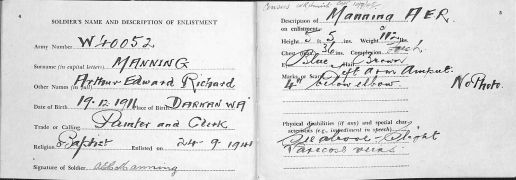 4
SOLDIER'S NAME AND DESCRIPTION OF ENLISTMENT
Army Number W40052
Surname (in capital letters) MANNING
Other Names (in full) Arthur Edward Richard
Date of Birth 19.12.1911 Place of Birth DARKAN WA
Trade or Calling Painter and Clerk
Religion Baptist Enlisted 24-9-1941
Signature of Soldier A E R Manning
5
Description of Manning A E R.
on enlistment:
Height 5 5 ins. Weight
Chest 36 ins. Complexion Fresh
Blue Hair Brown
Marks or Scars Left Arm Amput.
4" below elbow
No Photo.
Physical disabilities (if any) and special
(e.g., impediment in speech)
See above - Slight
Varicose veins